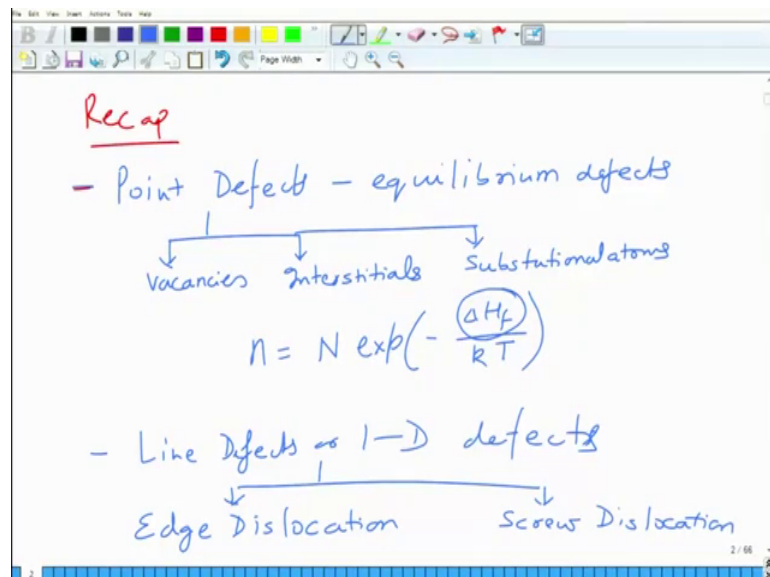 File Edit View Insert Actions Tools Help
B I
Page Width
Recap
- Point Defects - equilibrium defects
Vacancies Interstitials Substutional atoms
n = N exp(- ΔHf / kT)
- Line Defects or 1-D defects
Edge Dislocation Screw Dislocation
2 / 66
2